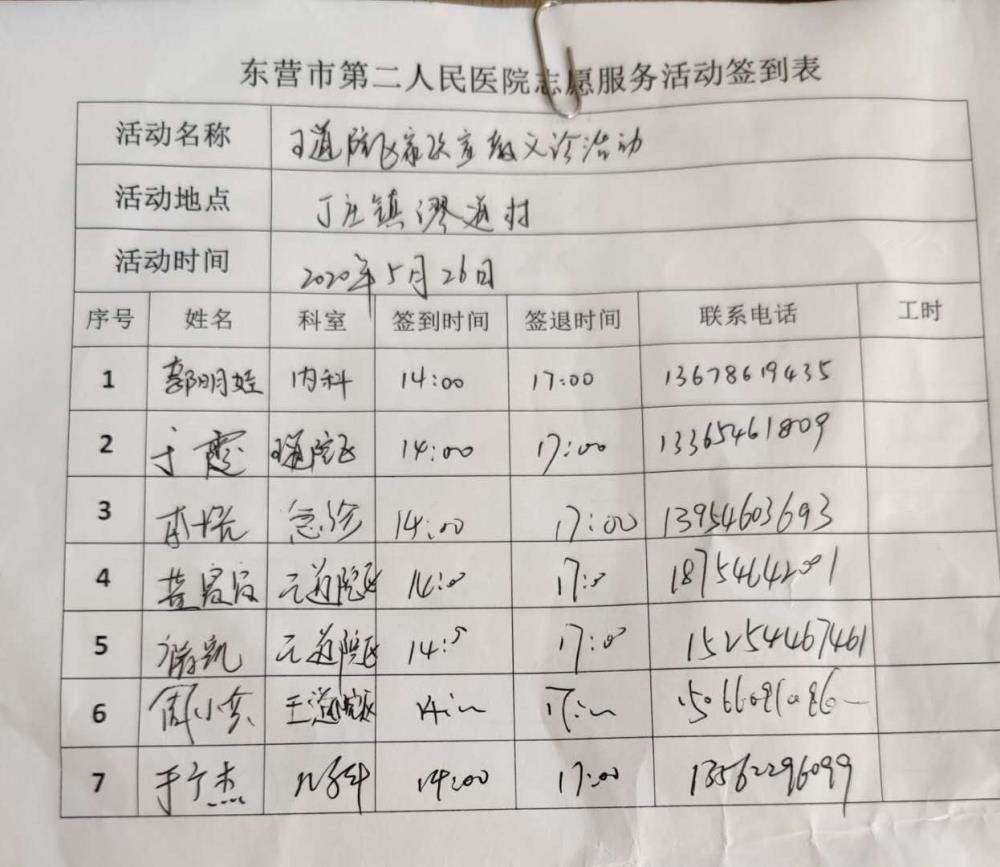 东营市第二人民医院志愿服务活动签到表
活动名称 王道院区 义诊活动
活动地点 丁庄镇 道村
活动时间 2020年5月26日
序号 姓名 科室 签到时间 签退时间 联系电话 工时
1 郭明娃 内科 14:00 17:00 13678619435
2 于霞 王道院区 14:00 17:00 13365461809
3 急诊 14:00 17:00 13954603693
4 王道院区 14:00 17:00 18754642001
5 凯 王道院区 14:00 17:00 15254467461
6 周小 王道院区 14:00 17:00
7 于广杰 儿科 14:00 17:00 13562296099